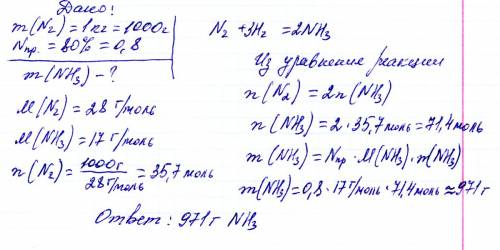 Дано:
m(N₂) = 1 кг = 1000г
Nпр. = 80% = 0,8
m(NH₃) - ?
M(N₂) = 28 г/моль
M(NH₃) = 17 г/моль
n(N₂) = 1000г / 28 г/моль = 35,7 моль
N₂ + 3H₂ = 2NH₃
Из уравнение реакции
n(N₂) = 2n(NH₃)
n(NH₃) = 2 · 35,7 моль = 71,4 моль
m(NH₃) = Nпр · M(NH₃) · m(NH₃)
m(NH₃) = 0,8 · 17 г/моль · 71,4 моль ≈ 971 г
Ответ: 971 г NH₃